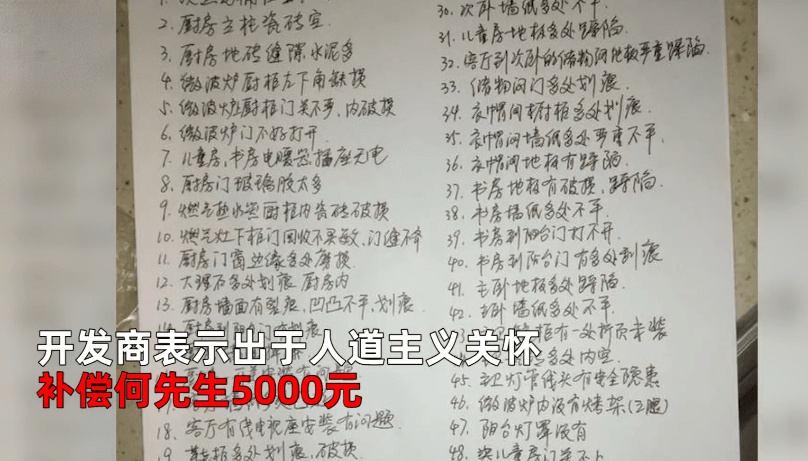 2. 厨房立柱瓷砖空.
3. 厨房地砖缝隙水泥多
4. 微波炉厨柜左下角缺损
5. 微波炉厨柜门关不平、内破损
6. 微波炉门不好打开.
7. 儿童房,书房电暖器插座无电
8. 厨房门玻璃胶太多
9. 燃气热水器厨柜内瓷砖破损.
10. 燃气灶下柜门回收不灵敏、门缝不齐
11. 厨房门窗边缘多处磨损.
12. 大理石多处划痕.厨房内
13. 厨房墙面有裂痕,凹凸不平,划痕.
14. 厨房到阳台门有划痕
18. 客厅有线电视座安装有问题.
19 鞋柜多处划痕,破损.
30. 次卧墙纸多处不平.
31. 儿童房地板多处蹋陷.
32. 客厅到次卧的储物间地板严重蹋陷.
33. 储物间门多处划痕.
34. 衣帽间衬柜多处划痕.
35. 衣帽间墙纸多处严重不平.
36. 衣帽间地板有蹋陷.
37. 书房地板有破损,蹋陷.
38. 书房墙纸多处不平.
39. 书房到阳台门打不开.
40. 书房到阳台门有多处划痕
41. 主卧地板多处蹋陷.
42. 主卧墙纸多处不平.
柜有一处折页未装
多处内空.
45. 主卫灯管线头有安全隐患
46. 微波炉内没有烤架(2层)
47. 阳台灯罩没有
48. 儿童房门关不上
开发商表示出于人道主义关怀
补偿何先生5000元